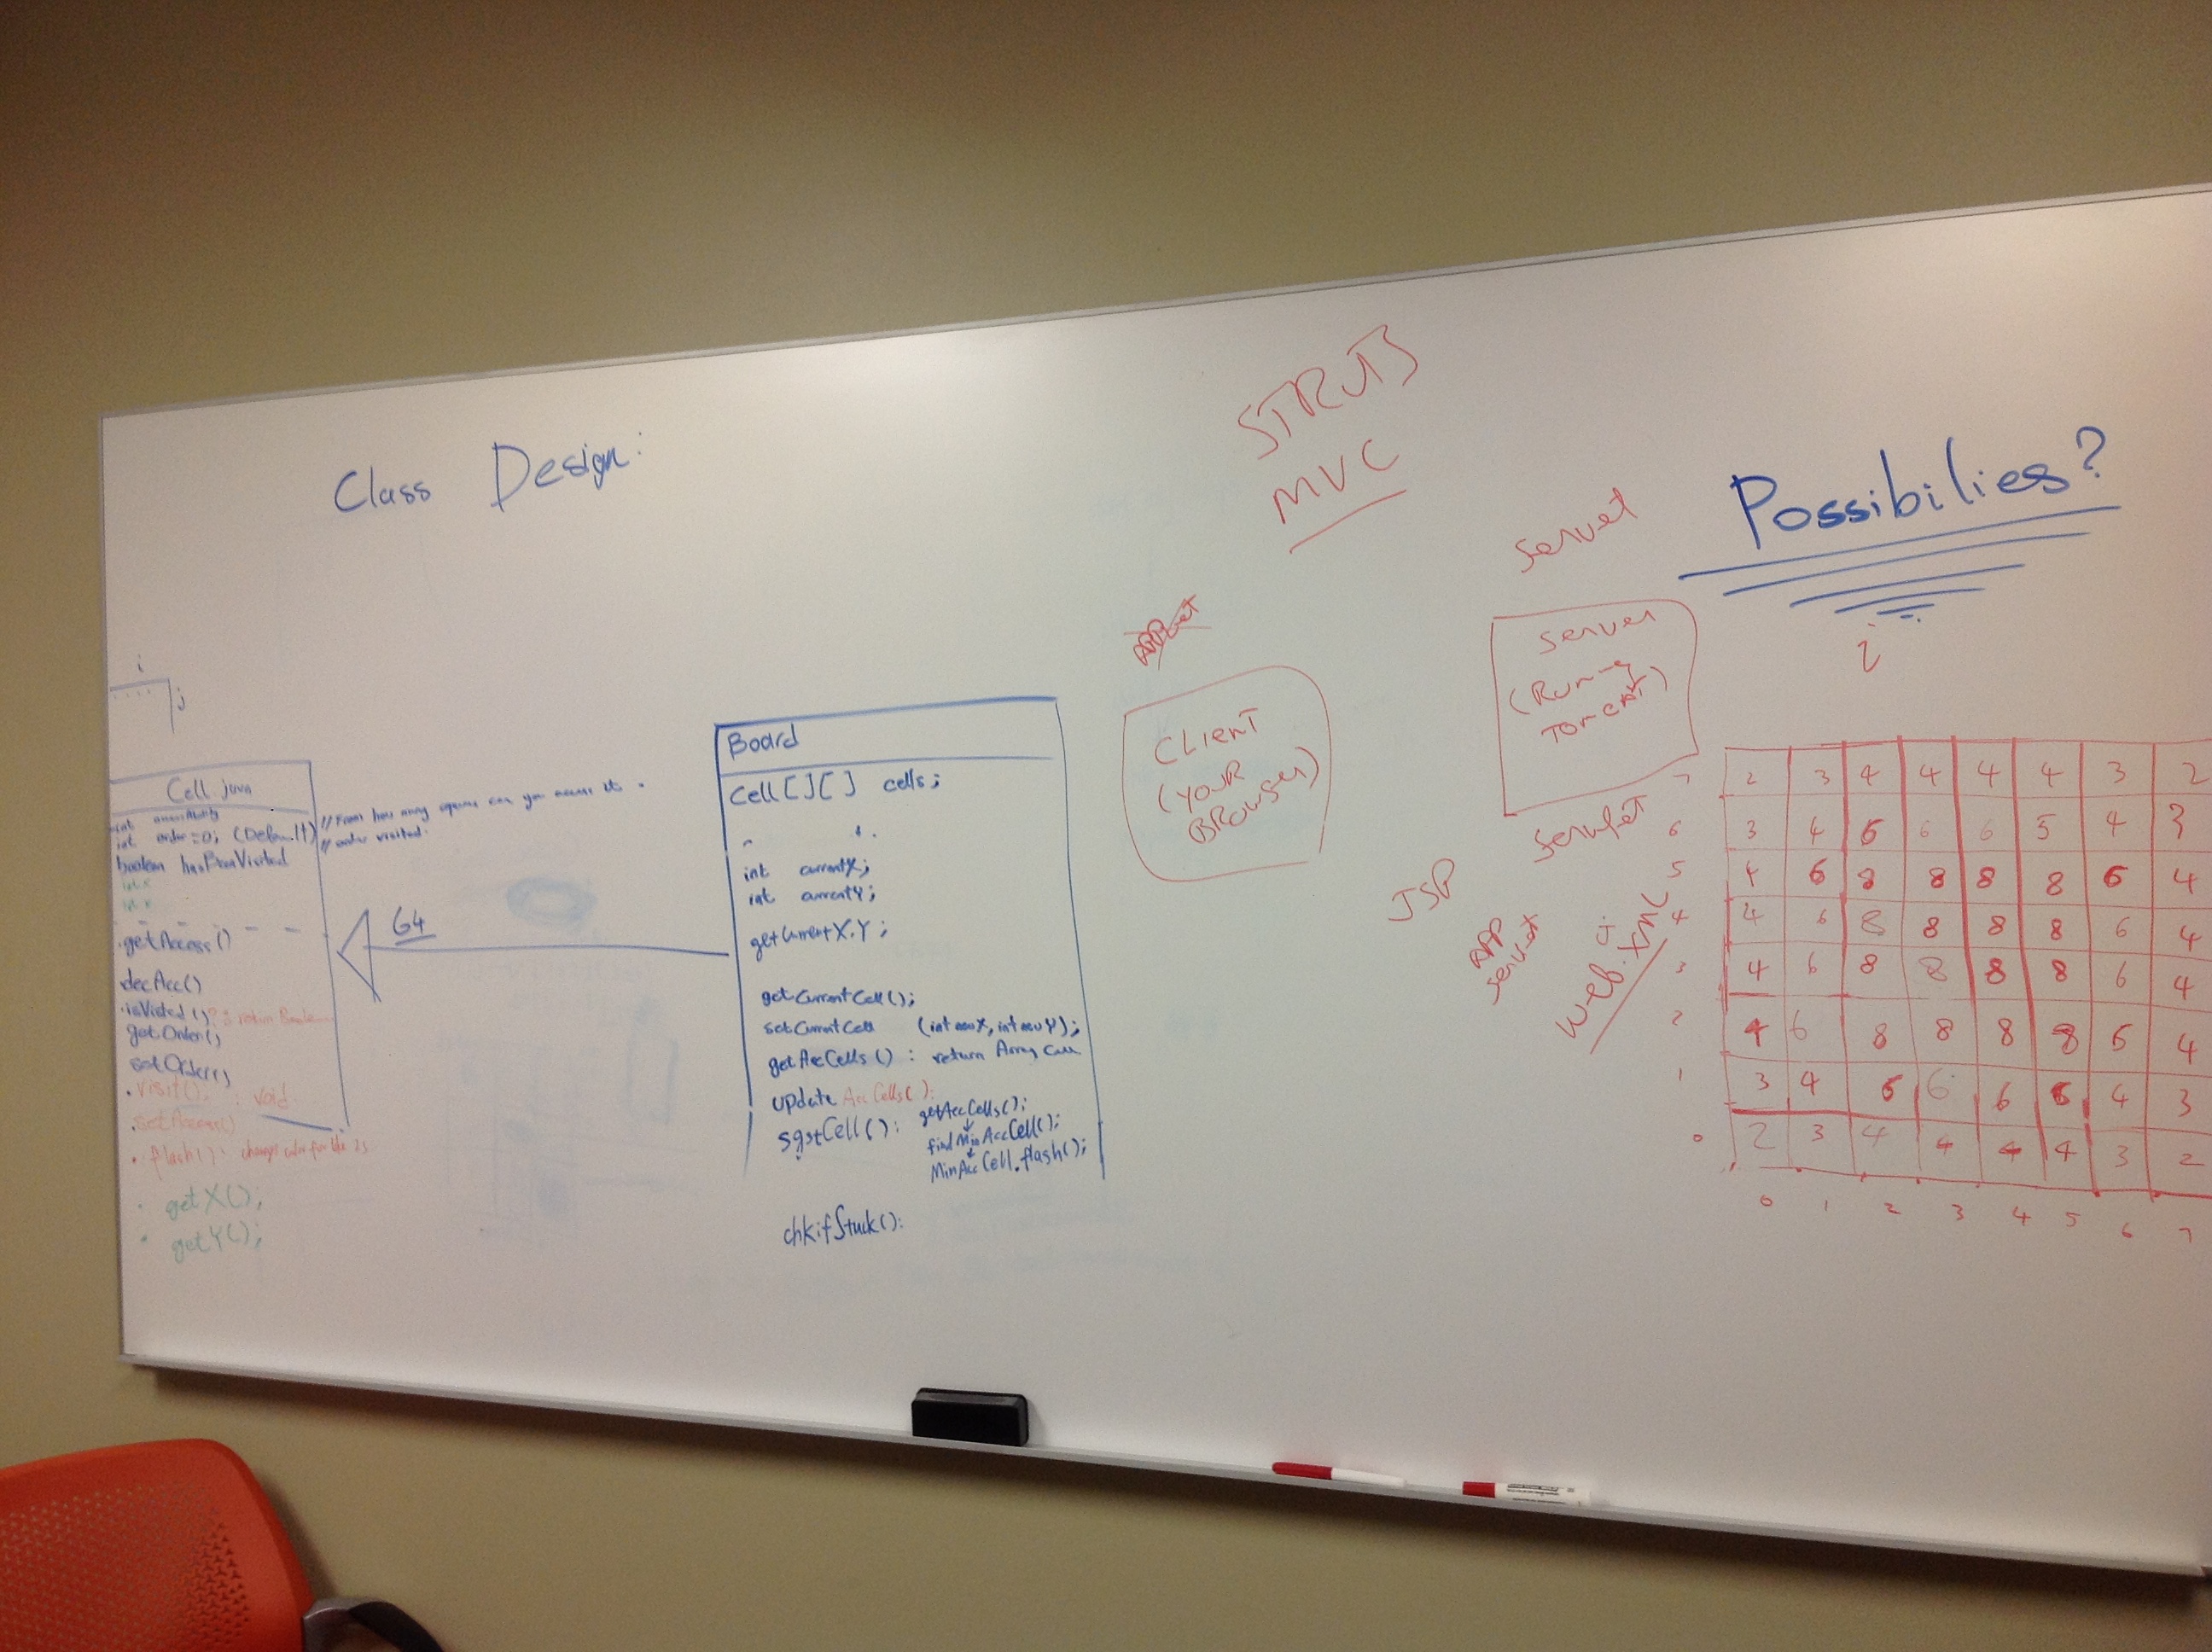 Class Design:
i
j
Cell java
int accessibility
int order=0; (Default)
boolean hasBeenVisited
int x
.getAccess()
decAcc()
.isVisited()
getOrder()
setOrder()
.visit(): void
.setAccess()
. flash(): changes color for like 2s
. getX();
. getY();
// From how many squares can you access it.
// order visited.
64
Board
Cell[][] cells;
int currentX;
int currentY;
getCurrentX,Y;
getCurrentCell();
setCurrentCell (int newX, int newY);
getAccCells() : return Array Cell
update AccCells():
sgstCell(): getAccCells();
findMinAccCell();
MinAccCell.flash();
chkifStuck():
STRUTS
MVC
CLIENT
(YOUR
BROWSER)
Server
(Running
Tomcat)
JSP
APP
web.xml
Possibilies?
i
7 2 3 4 4 4 4 3 2
6 3 4 6 6 6 5 4 3
5 4 6 8 8 8 8 6 4
4 4 6 8 8 8 8 6 4
3 4 6 8 8 8 8 6 4
2 4 6 8 8 8 8 6 4
1 3 4 6 6 6 6 4 3
0 2 3 4 4 4 4 3 2
0 1 2 3 4 5 6 7